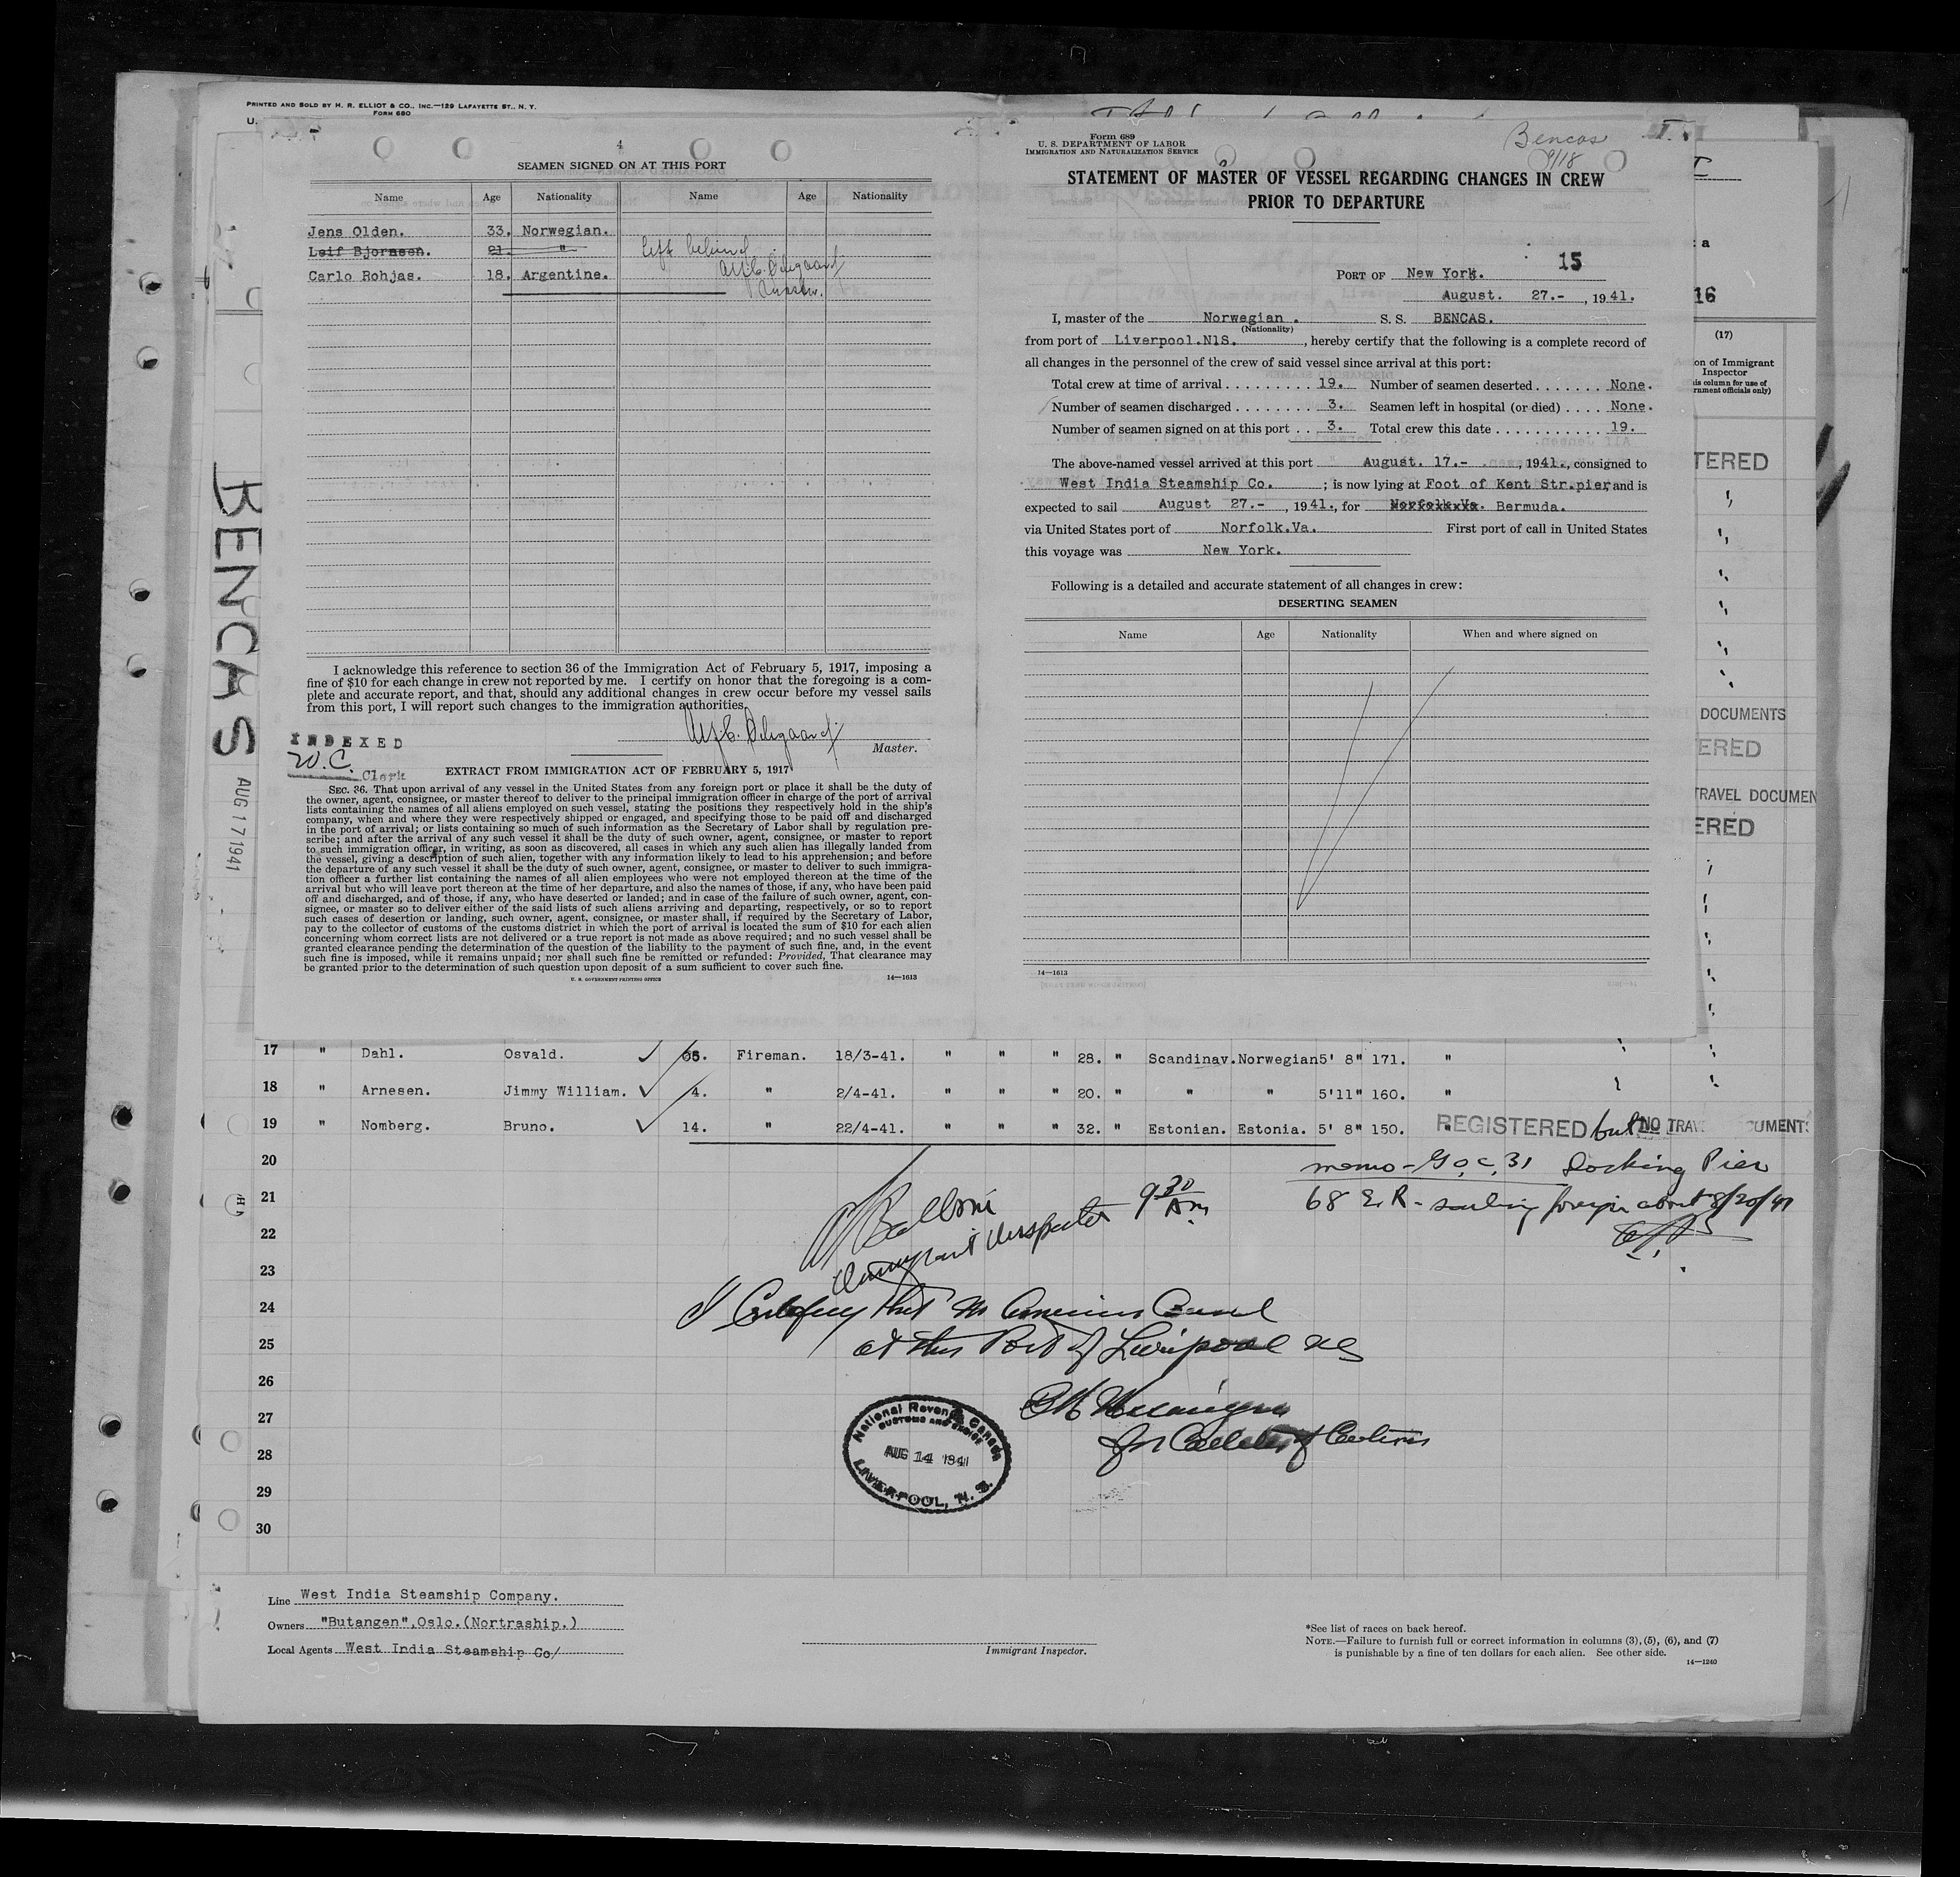 PRINTED AND SOLD BY H. R. ELLIOT & CO., INC.—129 LAFAYETTE ST., N. Y.
FORM 680
U.
4
SEAMEN SIGNED ON AT THIS PORT
Name Age Nationality Name Age Nationality
Jens Olden. 33. Norwegian.
Leif Bjornsen. 21. " left behind
Carlo Rohjas. 18. Argentine.
I acknowledge this reference to section 36 of the Immigration Act of February 5, 1917, imposing a
fine of $10 for each change in crew not reported by me. I certify on honor that the foregoing is a com-
plete and accurate report, and that, should any additional changes in crew occur before my vessel sails
from this port, I will report such changes to the immigration authorities.
Master.
INDEXED
W.C.
Clerk
EXTRACT FROM IMMIGRATION ACT OF FEBRUARY 5, 1917
SEC. 36. That upon arrival of any vessel in the United States from any foreign port or place it shall be the duty of
the owner, agent, consignee, or master thereof to deliver to the principal immigration officer in charge of the port of arrival
lists containing the names of all aliens employed on such vessel, stating the positions they respectively hold in the ship's
company, when and where they were respectively shipped or engaged, and specifying those to be paid off and discharged
in the port of arrival; or lists containing so much of such information as the Secretary of Labor shall by regulation pre-
scribe; and after the arrival of any such vessel it shall be the duty of such owner, agent, consignee, or master to report
to such immigration officer, in writing, as soon as discovered, all cases in which any such alien has illegally landed from
the vessel, giving a description of such alien, together with any information likely to lead to his apprehension; and before
the departure of any such vessel it shall be the duty of such owner, agent, consignee, or master to deliver to such immigra-
tion officer a further list containing the names of all alien employees who were not employed thereon at the time of the
arrival but who will leave port thereon at the time of her departure, and also the names of those, if any, who have been paid
off and discharged, and of those, if any, who have deserted or landed; and in case of the failure of such owner, agent, con-
signee, or master so to deliver either of the said lists of such aliens arriving and departing, respectively, or so to report
such cases of desertion or landing, such owner, agent, consignee, or master shall, if required by the Secretary of Labor,
pay to the collector of customs of the customs district in which the port of arrival is located the sum of $10 for each alien
concerning whom correct lists are not delivered or a true report is not made as above required; and no such vessel shall be
granted clearance pending the determination of the question of the liability to the payment of such fine, and, in the event
such fine is imposed, while it remains unpaid; nor shall such fine be remitted or refunded: Provided, That clearance may
be granted prior to the determination of such question upon deposit of a sum sufficient to cover such fine.
U. S. GOVERNMENT PRINTING OFFICE 14—1613
BENCAS
AUG 17 1941
Form 689
U. S. DEPARTMENT OF LABOR
IMMIGRATION AND NATURALIZATION SERVICE
Bencas
8/18
STATEMENT OF MASTER OF VESSEL REGARDING CHANGES IN CREW
PRIOR TO DEPARTURE
15
PORT OF New York.
August. 27.- , 1941.
I, master of the Norwegian. S. S. BENCAS.
(Nationality)
from port of Liverpool.NlS. , hereby certify that the following is a complete record of
all changes in the personnel of the crew of said vessel since arrival at this port:
Total crew at time of arrival 19. Number of seamen deserted None.
Number of seamen discharged 3. Seamen left in hospital (or died) None.
Number of seamen signed on at this port 3. Total crew this date 19.
The above-named vessel arrived at this port August. 17.- , 1941., consigned to
West India Steamship Co. ; is now lying at Foot of Kent Str.pier, and is
expected to sail August 27.- , 1941., for Norfolk.Va. Bermuda.
via United States port of Norfolk.Va. First port of call in United States
this voyage was New York.
Following is a detailed and accurate statement of all changes in crew:
DESERTING SEAMEN
Name Age Nationality When and where signed on
14—1613
a
16
(17)
on of Immigrant
Inspector
is column for use of
rnment officials only)
TERED
DOCUMENTS
ERED
TRAVEL DOCUMEN
ERED
17 " Dahl. Osvald. 05. Fireman. 18/3-41. " " " 28. " Scandinav. Norwegian 5' 8" 171. "
18 " Arnesen. Jimmy William. 4. " 2/4-41. " " " 20. " " " 5'11" 160. "
19 " Nomberg. Bruno. 14. " 22/4-41. " " " 32. " Estonian. Estonia. 5' 8" 150. " REGISTERED but NO TRAV CUMENT
20
21
22
23
24
25
26
27
28
29
30
memo - G.O.C. 31 Docking Pier
68 E.R - sailing foreign about 8/20/41
Immigrant Inspector 9 30 Am
I Certify that no American Consul
at this Port of Liverpool NS
for Collector of Customs
National Revenue Canada
CUSTOMS AND EXCISE
AUG 14 1941
LIVERPOOL, N. S.
Line West India Steamship Company.
Owners "Butangen",Oslo.(Nortraship.)
Local Agents West India Steamship Co/
Immigrant Inspector.
*See list of races on back hereof.
NOTE.—Failure to furnish full or correct information in columns (3), (5), (6), and (7)
is punishable by a fine of ten dollars for each alien. See other side.
14—1240